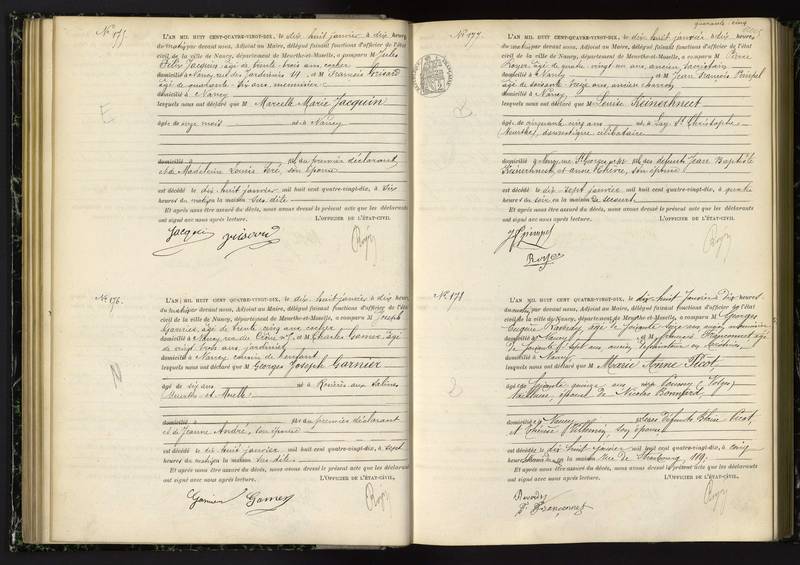 No 175
L'AN MIL HUIT CENT QUATRE-VINGT-DIX, le dix huit janvier à dix heures
du matin par devant nous, Adjoint au Maire, délégué faisant fonctions d'officier de l'état
civil de la ville de Nancy, département de Meurthe-et-Moselle, a comparu M Jules
Félix Jacquin, âgé de trente trois ans, cocher
domicilié à Nancy, rue des Jardiniers 14 et M François
âgé de quarante six ans, menuisier
domicilié à Nancy
lesquels nous ont déclaré que M Marcelle Marie Jacquin
âgée de onze mois né à Nancy
domicilié à fille du premier déclarant
et de Madeleine Louise son épouse
est décédé le dix huit janvier mil huit cent quatre-vingt-dix, à six
heures du matin en la maison sus dite
Et après nous être assuré du décès, nous avons dressé le présent acte que les déclarants
ont signé avec nous après lecture. L'OFFICIER DE L'ÉTAT-CIVIL
Jacquin
E
No 176.
L'AN MIL HUIT CENT QUATRE-VINGT-DIX, le dix huit janvier à dix heures
du matin par devant nous, Adjoint au Maire, délégué faisant fonctions d'officier de l'état
civil de la ville de Nancy, département de Meurthe-et-Moselle, a comparu M Joseph
Garnier, âgé de trente cinq ans cocher
domicilié à Nancy, rue de et M Charles Gamer, âgé
de vingt trois ans, jardinier
domicilié à Nancy cousin de l'enfant
lesquels nous ont déclaré que M Georges Joseph Garnier
âgé de six ans né à Rosières aux Salines,
Meurthe et Melle
domicilié à fils du premier déclarant
et de Jeanne André, son épouse
est décédé le dix huit janvier mil huit cent quatre-vingt-dix, à sept
heures du matin en la maison sus dite
Et après nous être assuré du décès, nous avons dressé le présent acte que les déclarants
ont signé avec nous après lecture. L'OFFICIER DE L'ÉTAT-CIVIL,
Garnier Gamer
N
quarante cinq
No 177.
L'AN MIL HUIT CENT QUATRE-VINGT-DIX, le dix huit janvier à dix heures
du matin par devant nous, Adjoint au Maire, délégué faisant fonctions d'officier de l'état
civil de la ville de Nancy, département de Meurthe-et-Moselle, a comparu M Pierre
Royer âgé de quatre vingt un ans, ancien sacristain
domicilié à Nancy et M Jean François
âgé de soixante seize ans, ancien charron
domicilié à Nancy
lesquels nous ont déclaré que M Louise Keinerknect
âgée de cinquante cinq ans née à Lay St Christophe
(Meurthe), domestique célibataire
domiciliée à Nancy, rue St Georges fille des défunts Jean Baptiste
Keinerknect, et Anne son épouse
est décédé le dix sept janvier mil huit cent quatre-vingt-dix, à quatre
heures du soir en la maison de secours
Et après nous être assuré du décès, nous avons dressé le présent acte que les déclarants
ont signé avec nous après lecture. L'OFFICIER DE L'ÉTAT-CIVIL,
Royer
No 178
L'AN MIL HUIT CENT QUATRE-VINGT-DIX, le dix huit Janvier à Dix heures
du matin par devant nous, Adjoint au Maire, délégué faisant fonctions d'officier de l'état
civil de la ville de Nancy, département de Meurthe-et-Moselle, a comparu M Georges
Eugène âgé de soixante ans ancien
domicilié à Nancy et M François Françonnet âgé
de soixante sept ans, ancien
domicilié à Nancy
lesquels nous ont déclaré que M Marie Anne Picot
âgée de soixante quinze ans née à Coussey (Vosges)
tailleuse, épouse de Nicolas Bonnard
domiciliée à Nancy fille des Défunts Blaise Picot,
et Thérèse Villemin, son épouse
est décédé le dix huit janvier mil huit cent quatre-vingt-dix, à cinq
heures du matin en la maison rue de Strasbourg, 119
Et après nous être assuré du décès, nous avons dressé le présent acte que les déclarants
ont signé avec nous après lecture. L'OFFICIER DE L'ÉTAT-CIVIL,
F. Françonnet